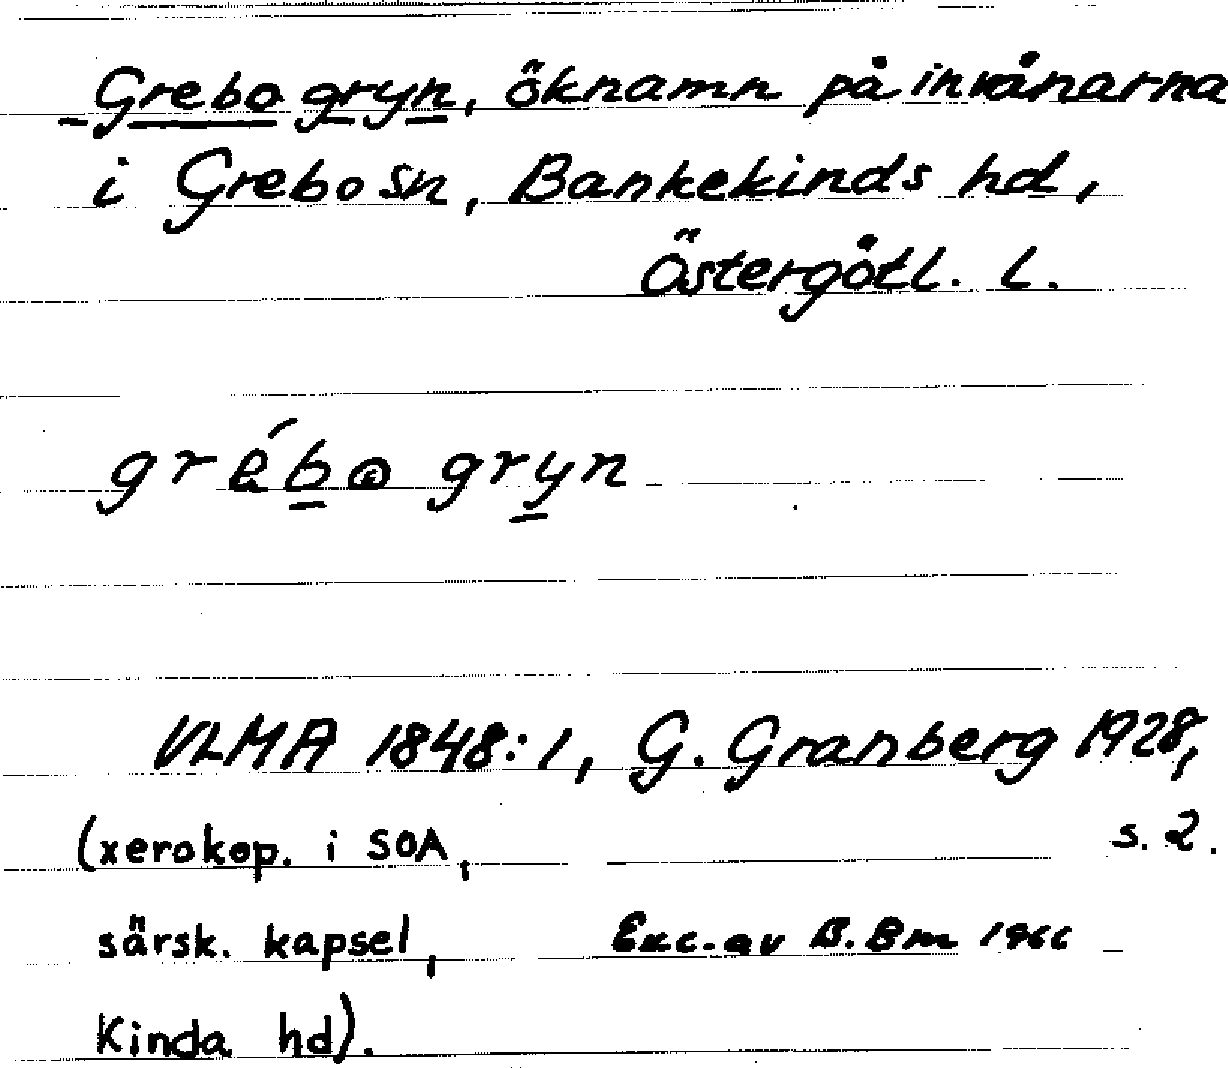 Grebo gryn, öknamn på invånarna
i Grebo sn, Bankekinds hd,
Östergötl. l.
grébo gryn
VLMA 1848:1, G. Granberg 1928,
s. 2.
(xerokop. i SOA,
särsk. kapsel,
Exc. av B. Bm 1966
Kinda hd).